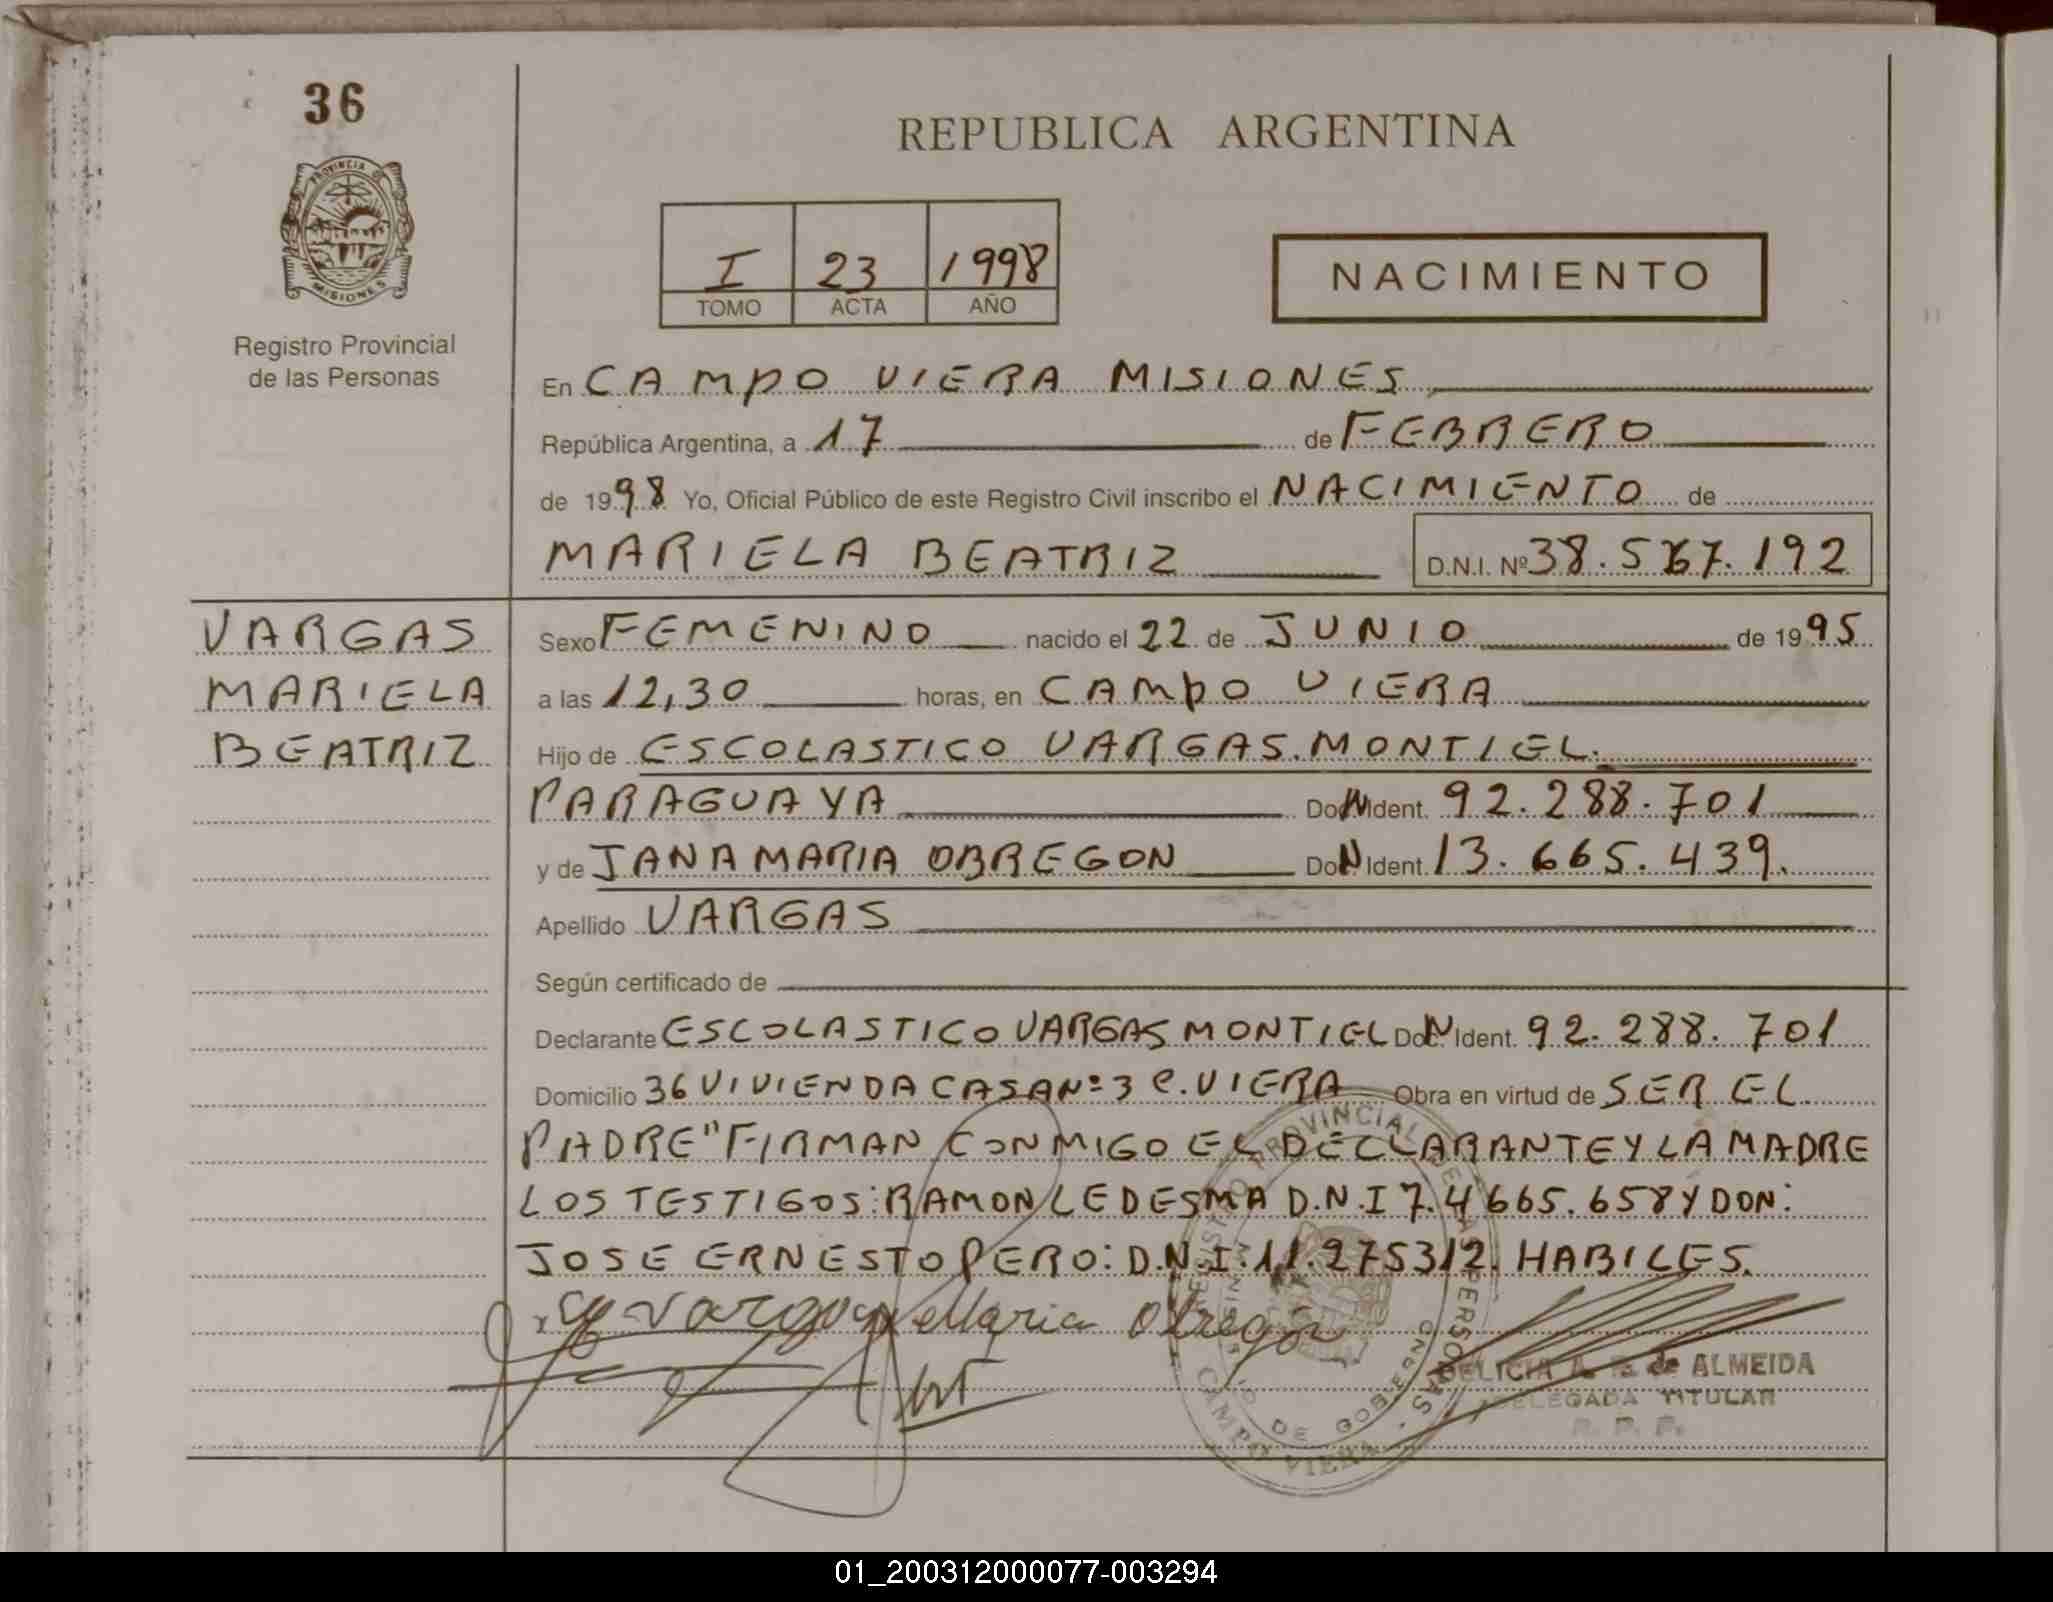 36
REPUBLICA ARGENTINA
PROVINCIA D
MISIONES
Registro Provincial
de las Personas
I 23 1998
TOMO ACTA AÑO
NACIMIENTO
En CAMPO VIERA MISIONES
República Argentina, a 17 de FEBRERO
de 1998 Yo, Oficial Público de este Registro Civil inscribo el NACIMIENTO de
MARIELA BEATRIZ D.N.I. Nº 38.567.192
VARGAS
MARIELA
BEATRIZ
Sexo FEMENINO nacido el 22 de JUNIO de 1995
a las 12,30 horas, en CAMPO VIERA
Hijo de ESCOLASTICO VARGAS.MONTIEL.
PARAGUAYA Ident. 92.288.701
y de JANA MARIA OBREGON Ident. 13.665.439.
Apellido VARGAS
Según certificado de
Declarante ESCOLASTICO VARGAS MONTIEL Ident. 92.288.701
Domicilio 36 VIVIENDA CASA Nº 3 C.VIERA Obra en virtud de SER EL
PADRE" FIRMAN CONMIGO EL DECLARANTE Y LA MADRE
LOS TESTIGOS: RAMON LEDESMA D.N.I 7.4665.658 Y DON:
JOSE ERNESTO PERO: D.N.I: 11.275312. HABILES.
Vargas Maria Obregon
REGISTRO PROVINCIAL DE LAS PERSONAS
MINISTERIO DE GOBIERNO
CAMPO VIERA
DELICIA A. de ALMEIDA
DELEGADA TITULAR
R. P. P.
01_200312000077-003294